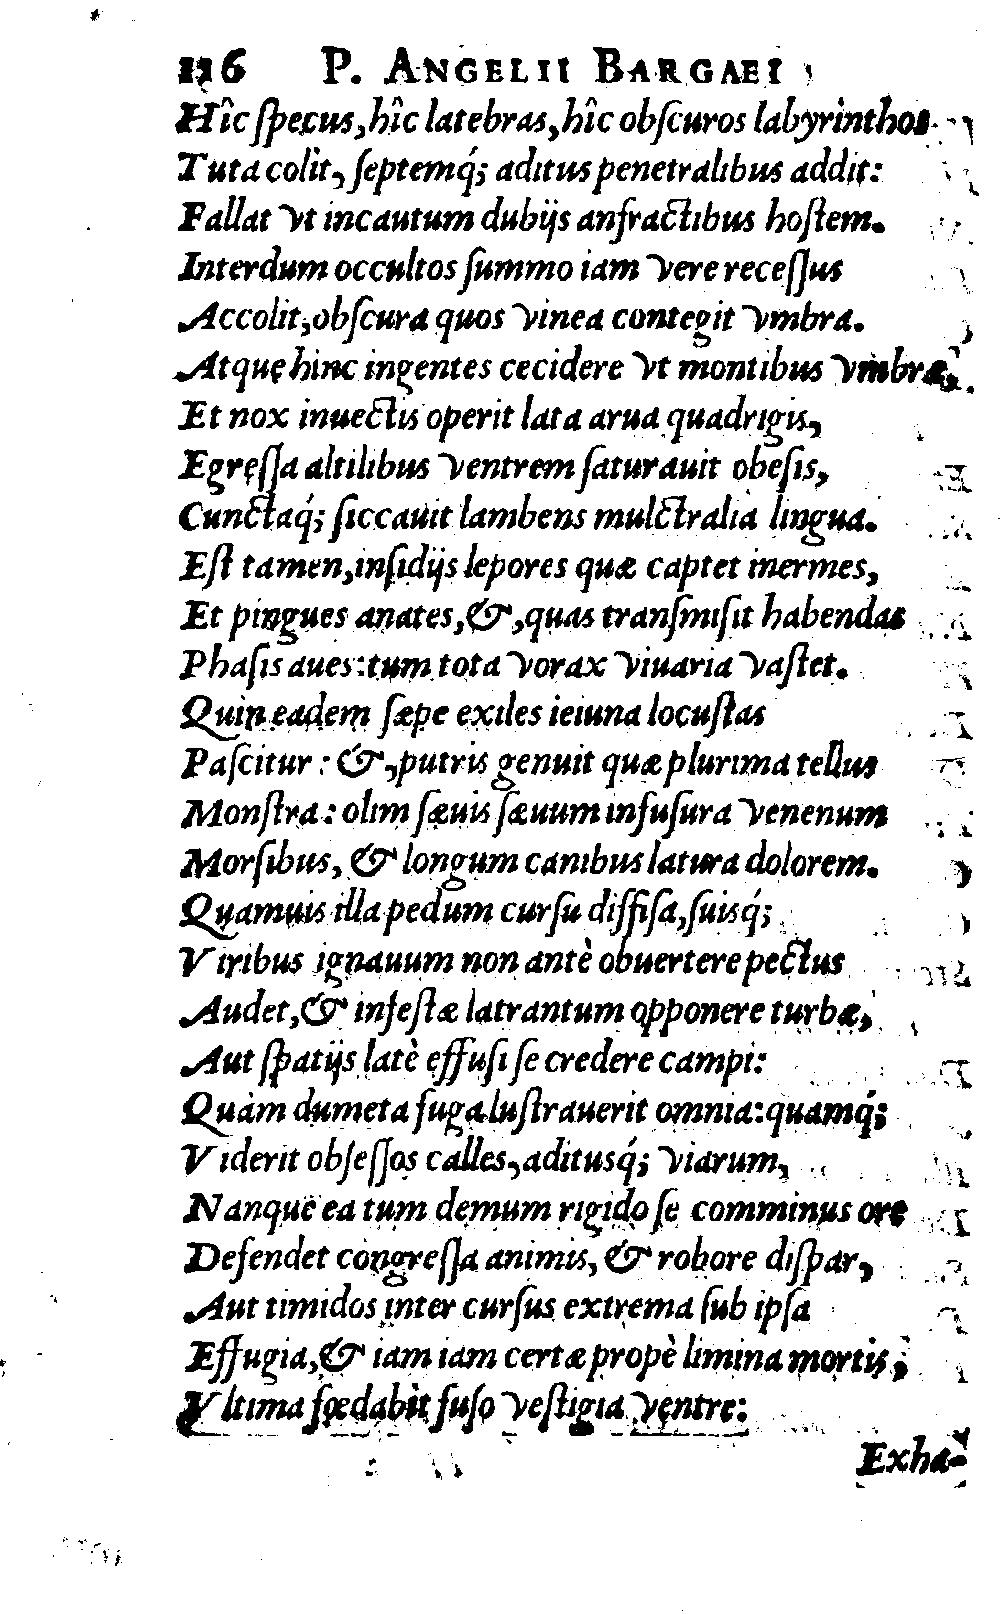 116 P. ANGELII BARGAEI
Hîc ſpecus, hîc latebras, hîc obſcuros labyrinthos
Tuta colit, ſeptemq́; aditus penetralibus addit:
Fallat vt incautum dubijs anfractibus hoſtem.
Interdum occultos ſummo iam vere receſſus
Accolit, obſcura quos vinea contegit vmbra.
Atque hinc ingentes cecidere vt montibus vmbræ,
Et nox inuectis operit lata arua quadrigis,
Egreſſa altilibus ventrem ſaturauit obeſis,
Cunctaq́; ſiccauit lambens mulctralia lingua.
Eſt tamen, inſidijs lepores quæ captet inermes,
Et pingues anates, &, quas tranſmiſit habendas
Phaſis aues: tum tota vorax viuaria vaſtet.
Quin eadem ſæpe exiles ieiuna locuſtas
Paſcitur: &, putris genuit quæ plurima tellus
Monſtra: olim ſæuis ſæuum infuſura venenum
Morſibus, & longum canibus latura dolorem.
Quamuis illa pedum curſu diffiſa, ſuisq́;
Viribus ignauum non antè obuertere pectus
Audet, & infeſtæ latrantum opponere turbæ,
Aut ſpatijs latè effuſi ſe credere campi:
Quàm dumeta fuga luſtrauerit omnia: quamq́;
Viderit obſeſſos calles, aditusq́; viarum,
Nanque ea tum demum rigido ſe comminus ore
Defendet congreſſa animis, & robore diſpar,
Aut timidos inter curſus extrema ſub ipſa
Effugia, & iam iam certæ propè limina mortis,
Vltima fœdabit fuſo veſtigia ventre:
Exha-